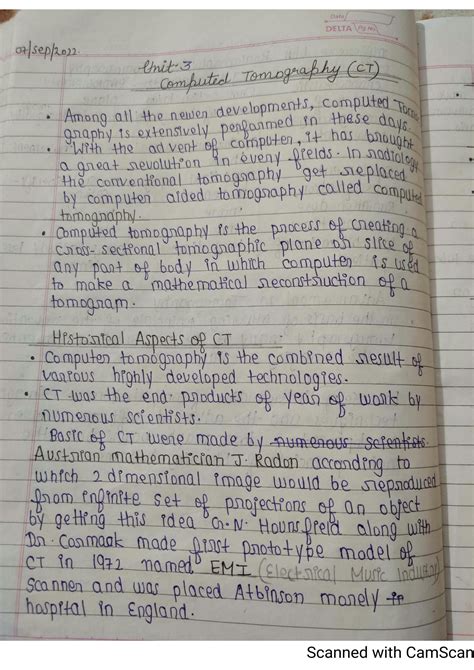 Date
DELTA Pg No.
07/sep/2022
Unit-3
Computed Tomography (CT)
• Among all the newer developments, computed Tomo
graphy is extensively performed in these days.
• With the advent of computer, it has brought
a great revolution in every fields. In radiology
the conventional tomography get replaced
by computer aided tomography called computed
tomography.
• Computed tomography is the process of creating a
cross-sectional tomographic plane or slice of
any part of body in which computer is used
to make a mathematical reconstruction of a
tomogram.
Historical Aspects of CT
• Computer tomography is the combined result of
various highly developed technologies.
• CT was the end products of year of work by
numerous scientists.
Basic of CT were made by numerous scientists
Austrian mathematician J. Radon according to
which 2 dimensional image would be reproduced
from infinite set of projections of an object
by getting this idea G.N. Hounsfield along with
Dr. Cormask made first prototype model of
CT in 1972 named EMI (Electrical Music Industry)
Scanner and was placed Atbinson manely in
hospital in England.
Scanned with CamScan